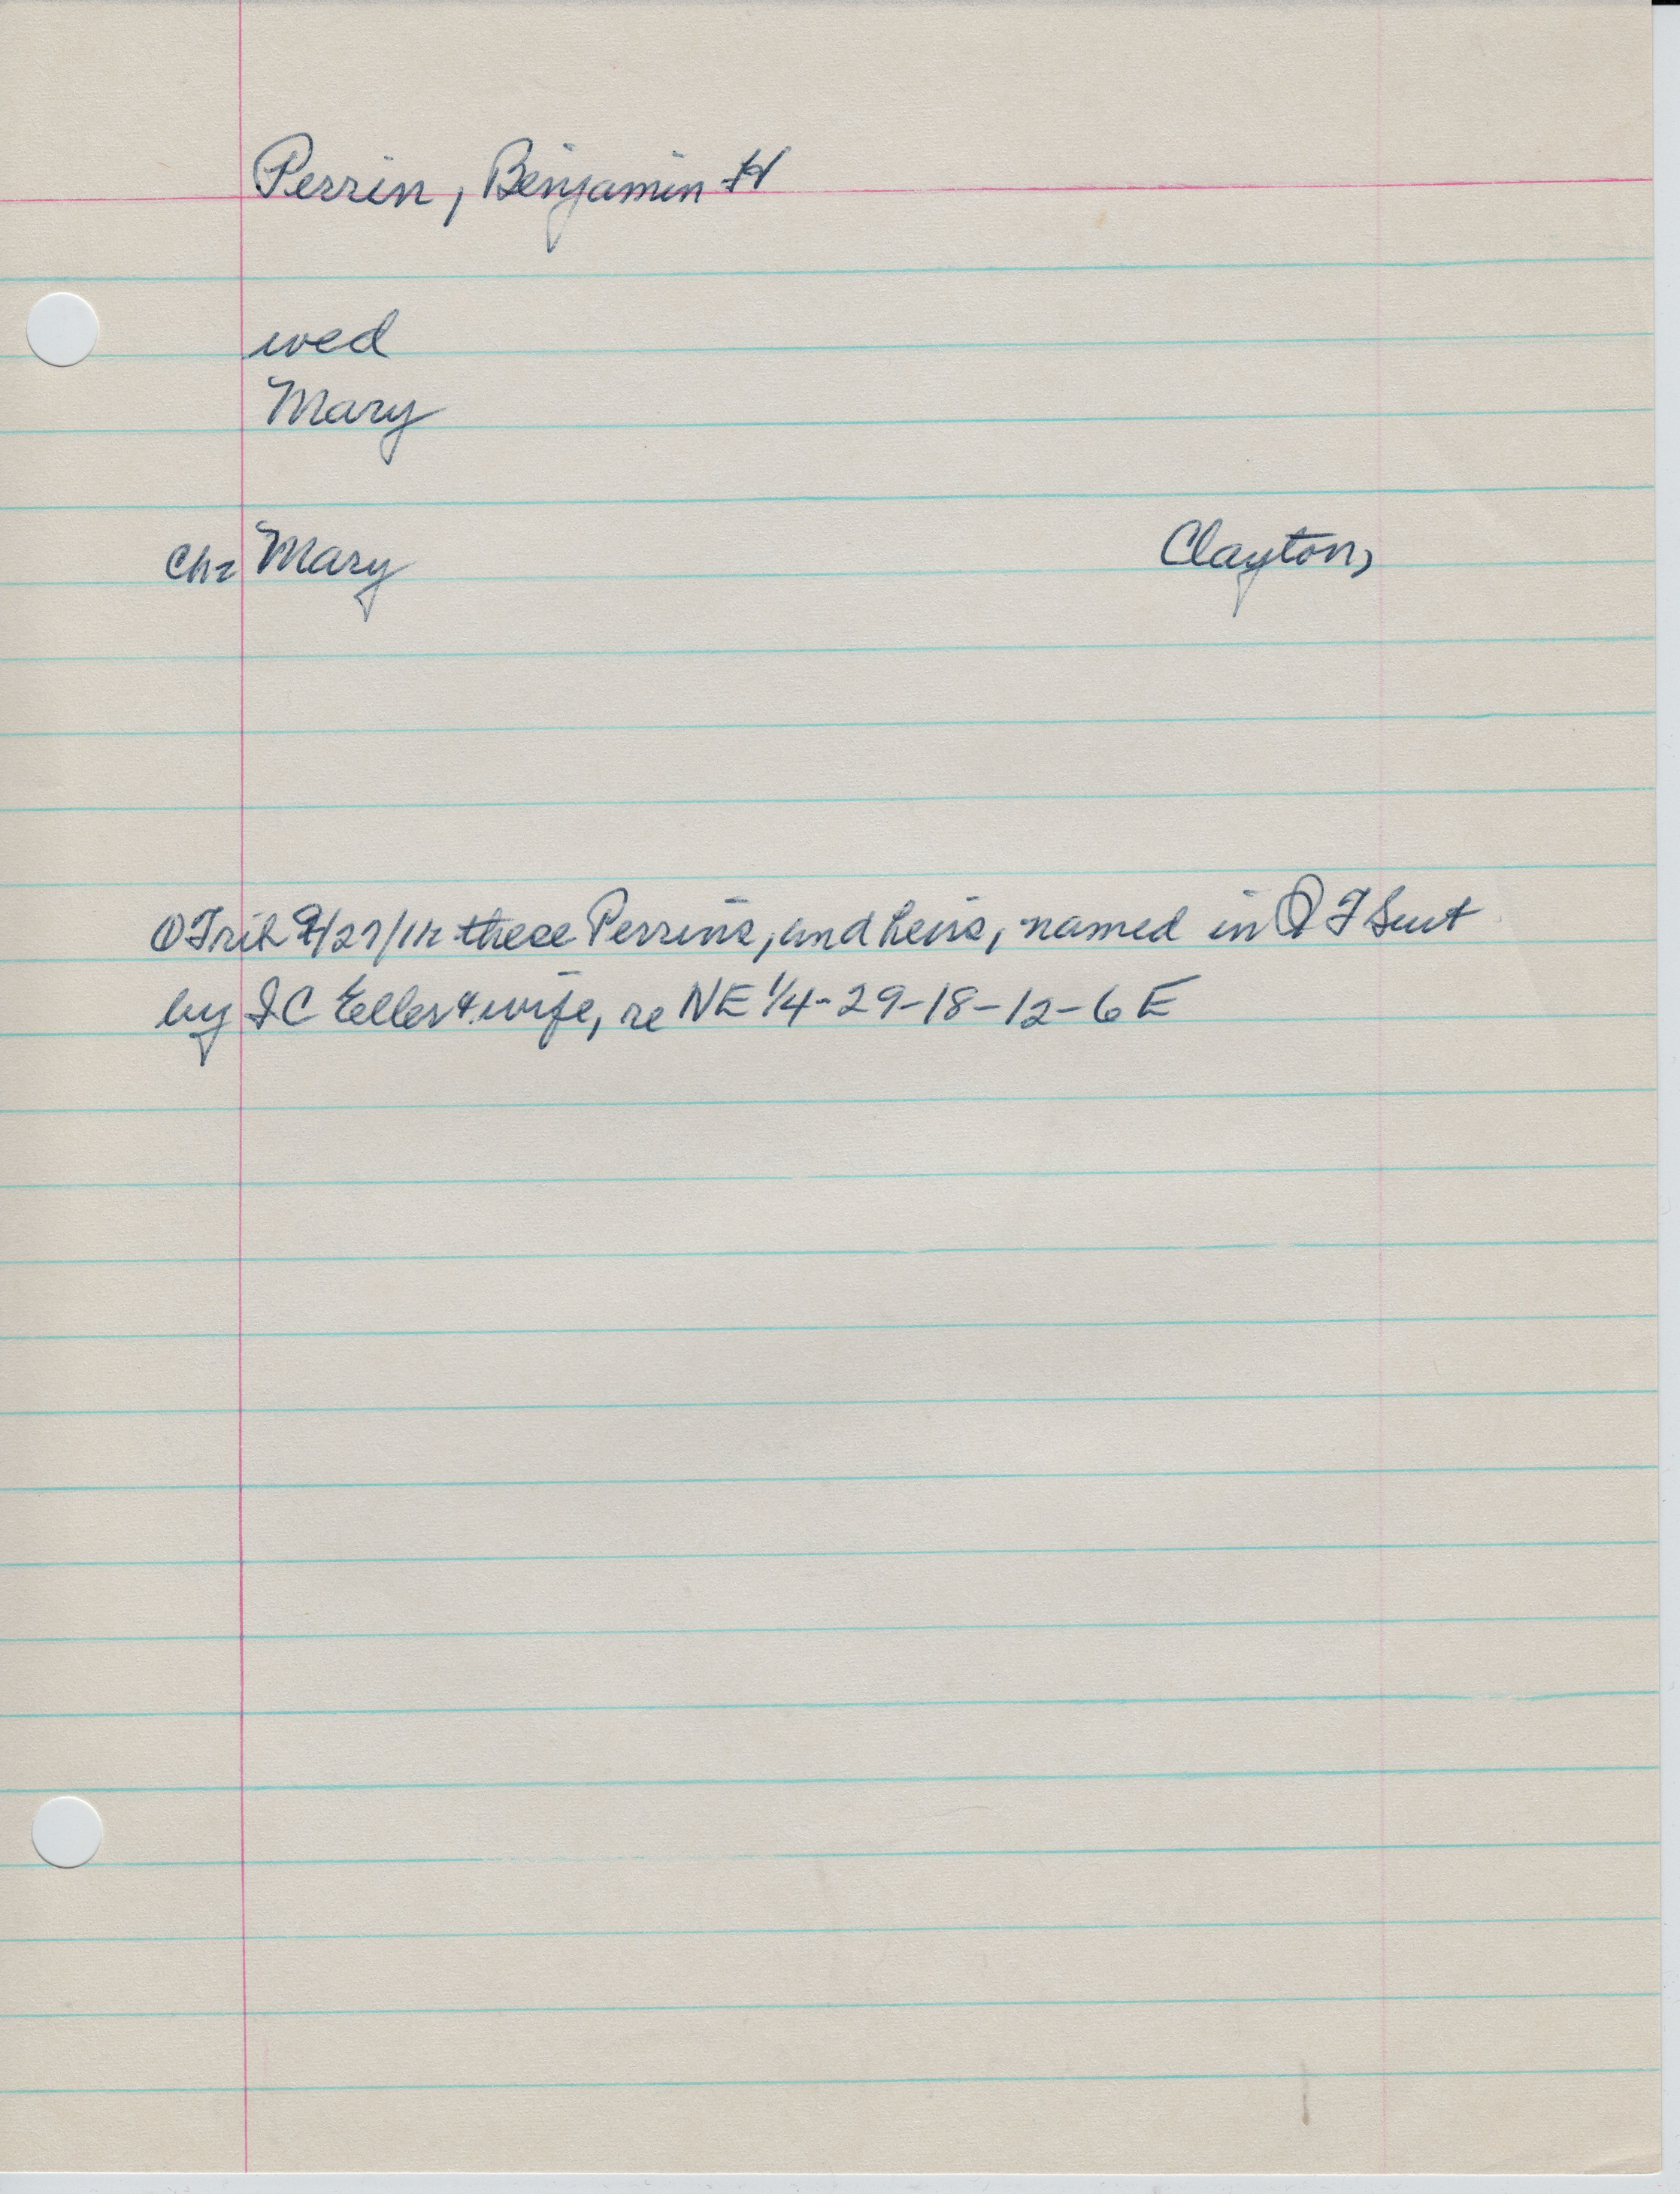 Perrin, Benjamin H
wed
Mary
Ch: Mary Clayton,
O Trib 9/27/ these Perrins, and heirs, named in Q T Suit
by I C Eller & wife, re NE 1/4-29-18-12-6 E